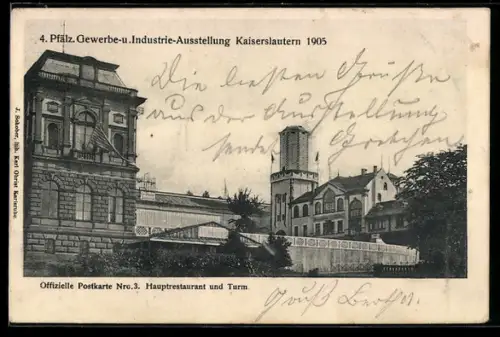 4. Pfälz. Gewerbe- u. Industrie-Ausstellung Kaiserslautern 1905
Die besten Grüße
aus der Ausstellung
sendet Gretchen
J. Schober, Inh. Karl Obrist Karlsruhe.
Offizielle Postkarte Nro. 3. Hauptrestaurant und Turm.
Gruß